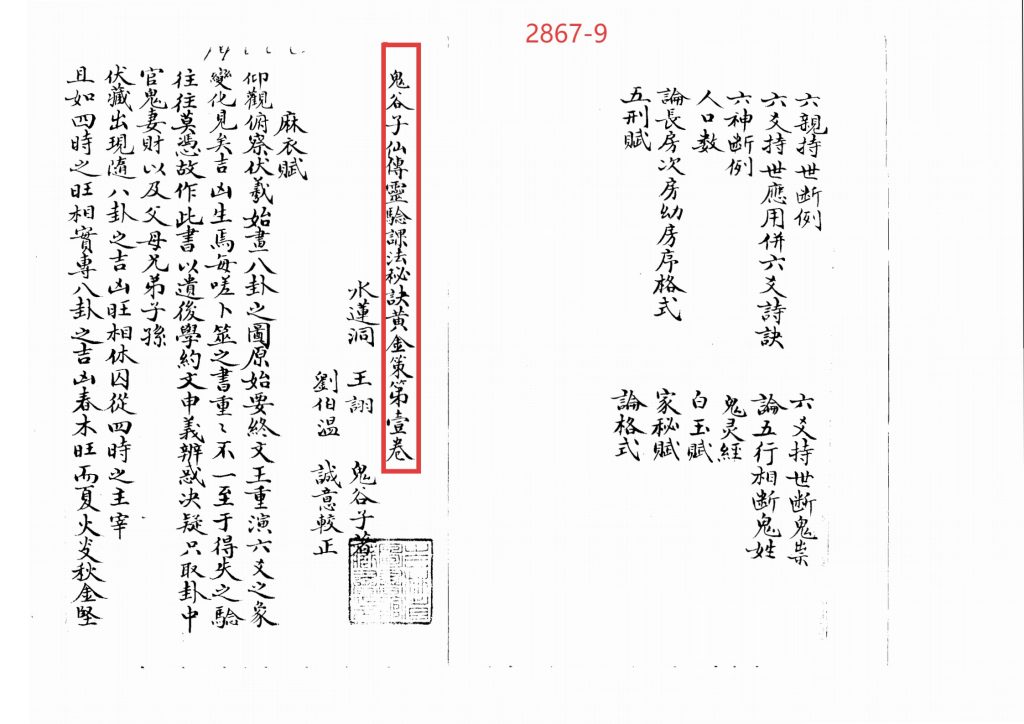 2867-9
六親持世断例
六爻持世應用併六爻詩訣
六神断例
人口数
論長房次房幼房序格式
五刑賦
六爻持世断鬼祟
論五行相断鬼姓
鬼灵經
白玉賦
家秘賦
論格式
鬼谷子仙傳靈驗課法秘訣黄金策第壹卷
水蓮洞 王詡 鬼谷子著
劉伯温 誠意較正
麻衣賦
仰觀俯察伏羲始畫八卦之圖原始要終文王重演六爻之象
變化見矣吉凶生焉每嗟卜筮之書重〻不一至于得失之驗
往往莫憑故作此書以遺後學約文申義辨惑决疑只取卦中
官鬼妻財以及父母兄弟子孫
伏藏出現隨八卦之吉凶旺相休囚從四時之主宰
且如四時之旺相實專八卦之吉凶春木旺而夏火炎秋金堅